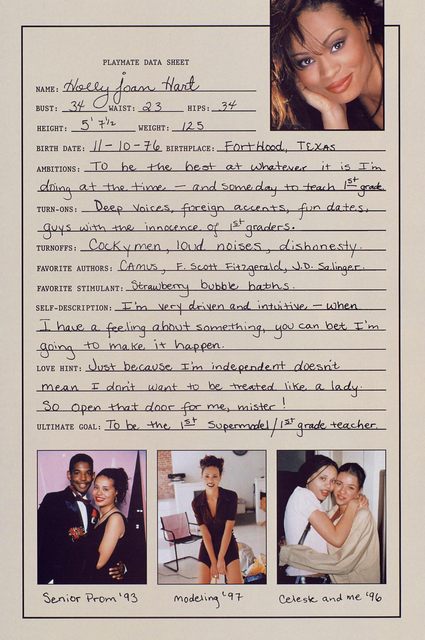 PLAYMATE DATA SHEET
NAME: Holly Joan Hart
BUST: 34 WAIST: 23 HIPS: 34
HEIGHT: 5' 7½ WEIGHT: 125
BIRTH DATE: 11-10-76 BIRTHPLACE: Fort Hood, TEXAS
AMBITIONS: To be the best at whatever it is I'm
doing at the time — and someday to teach 1st grade
TURN-ONS: Deep voices, foreign accents, fun dates,
guys with the innocence of 1st graders.
TURNOFFS: Cocky men, loud noises, dishonesty.
FAVORITE AUTHORS: CAMUS, F. Scott Fitzgerald, J.D. Salinger.
FAVORITE STIMULANT: Strawberry bubble baths.
SELF-DESCRIPTION: I'm very driven and intuitive — when
I have a feeling about something, you can bet I'm
going to make it happen.
LOVE HINT: Just because I'm independent doesn't
mean I don't want to be treated like a lady.
So open that door for me, mister!
ULTIMATE GOAL: To be the 1st Supermodel/1st grade teacher.
Senior Prom '93
Modeling '97
Celeste and me '96